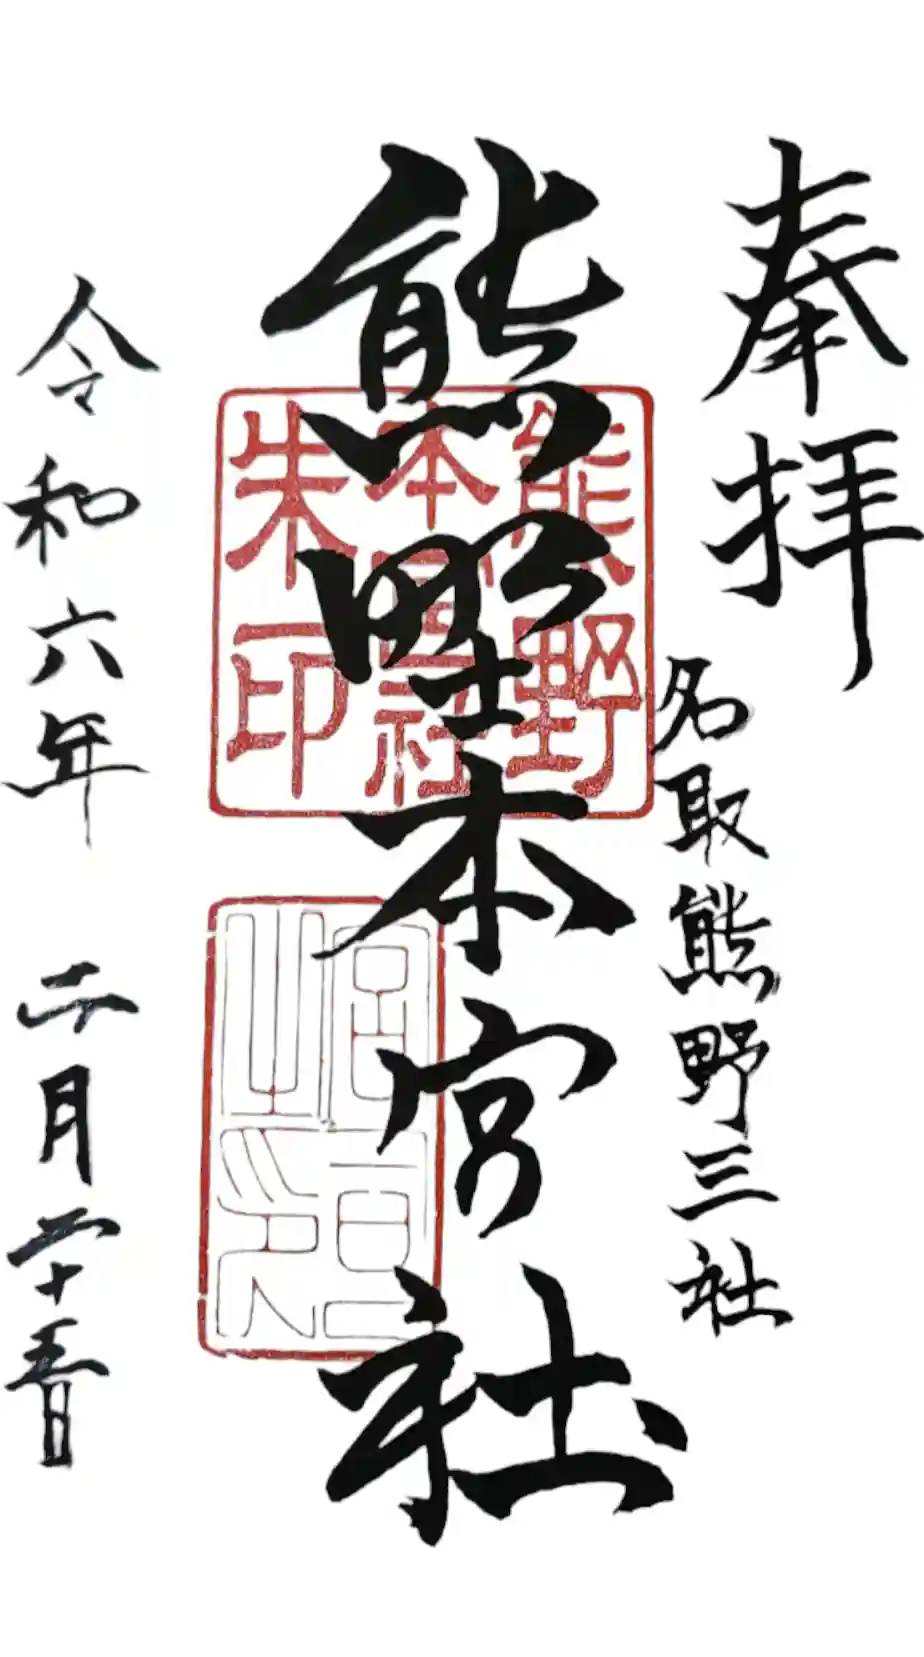 奉拝
名取熊野三社
熊野本宮社
令和六年 二月二十五日
熊野
本宮社
朱印
宮司
之印